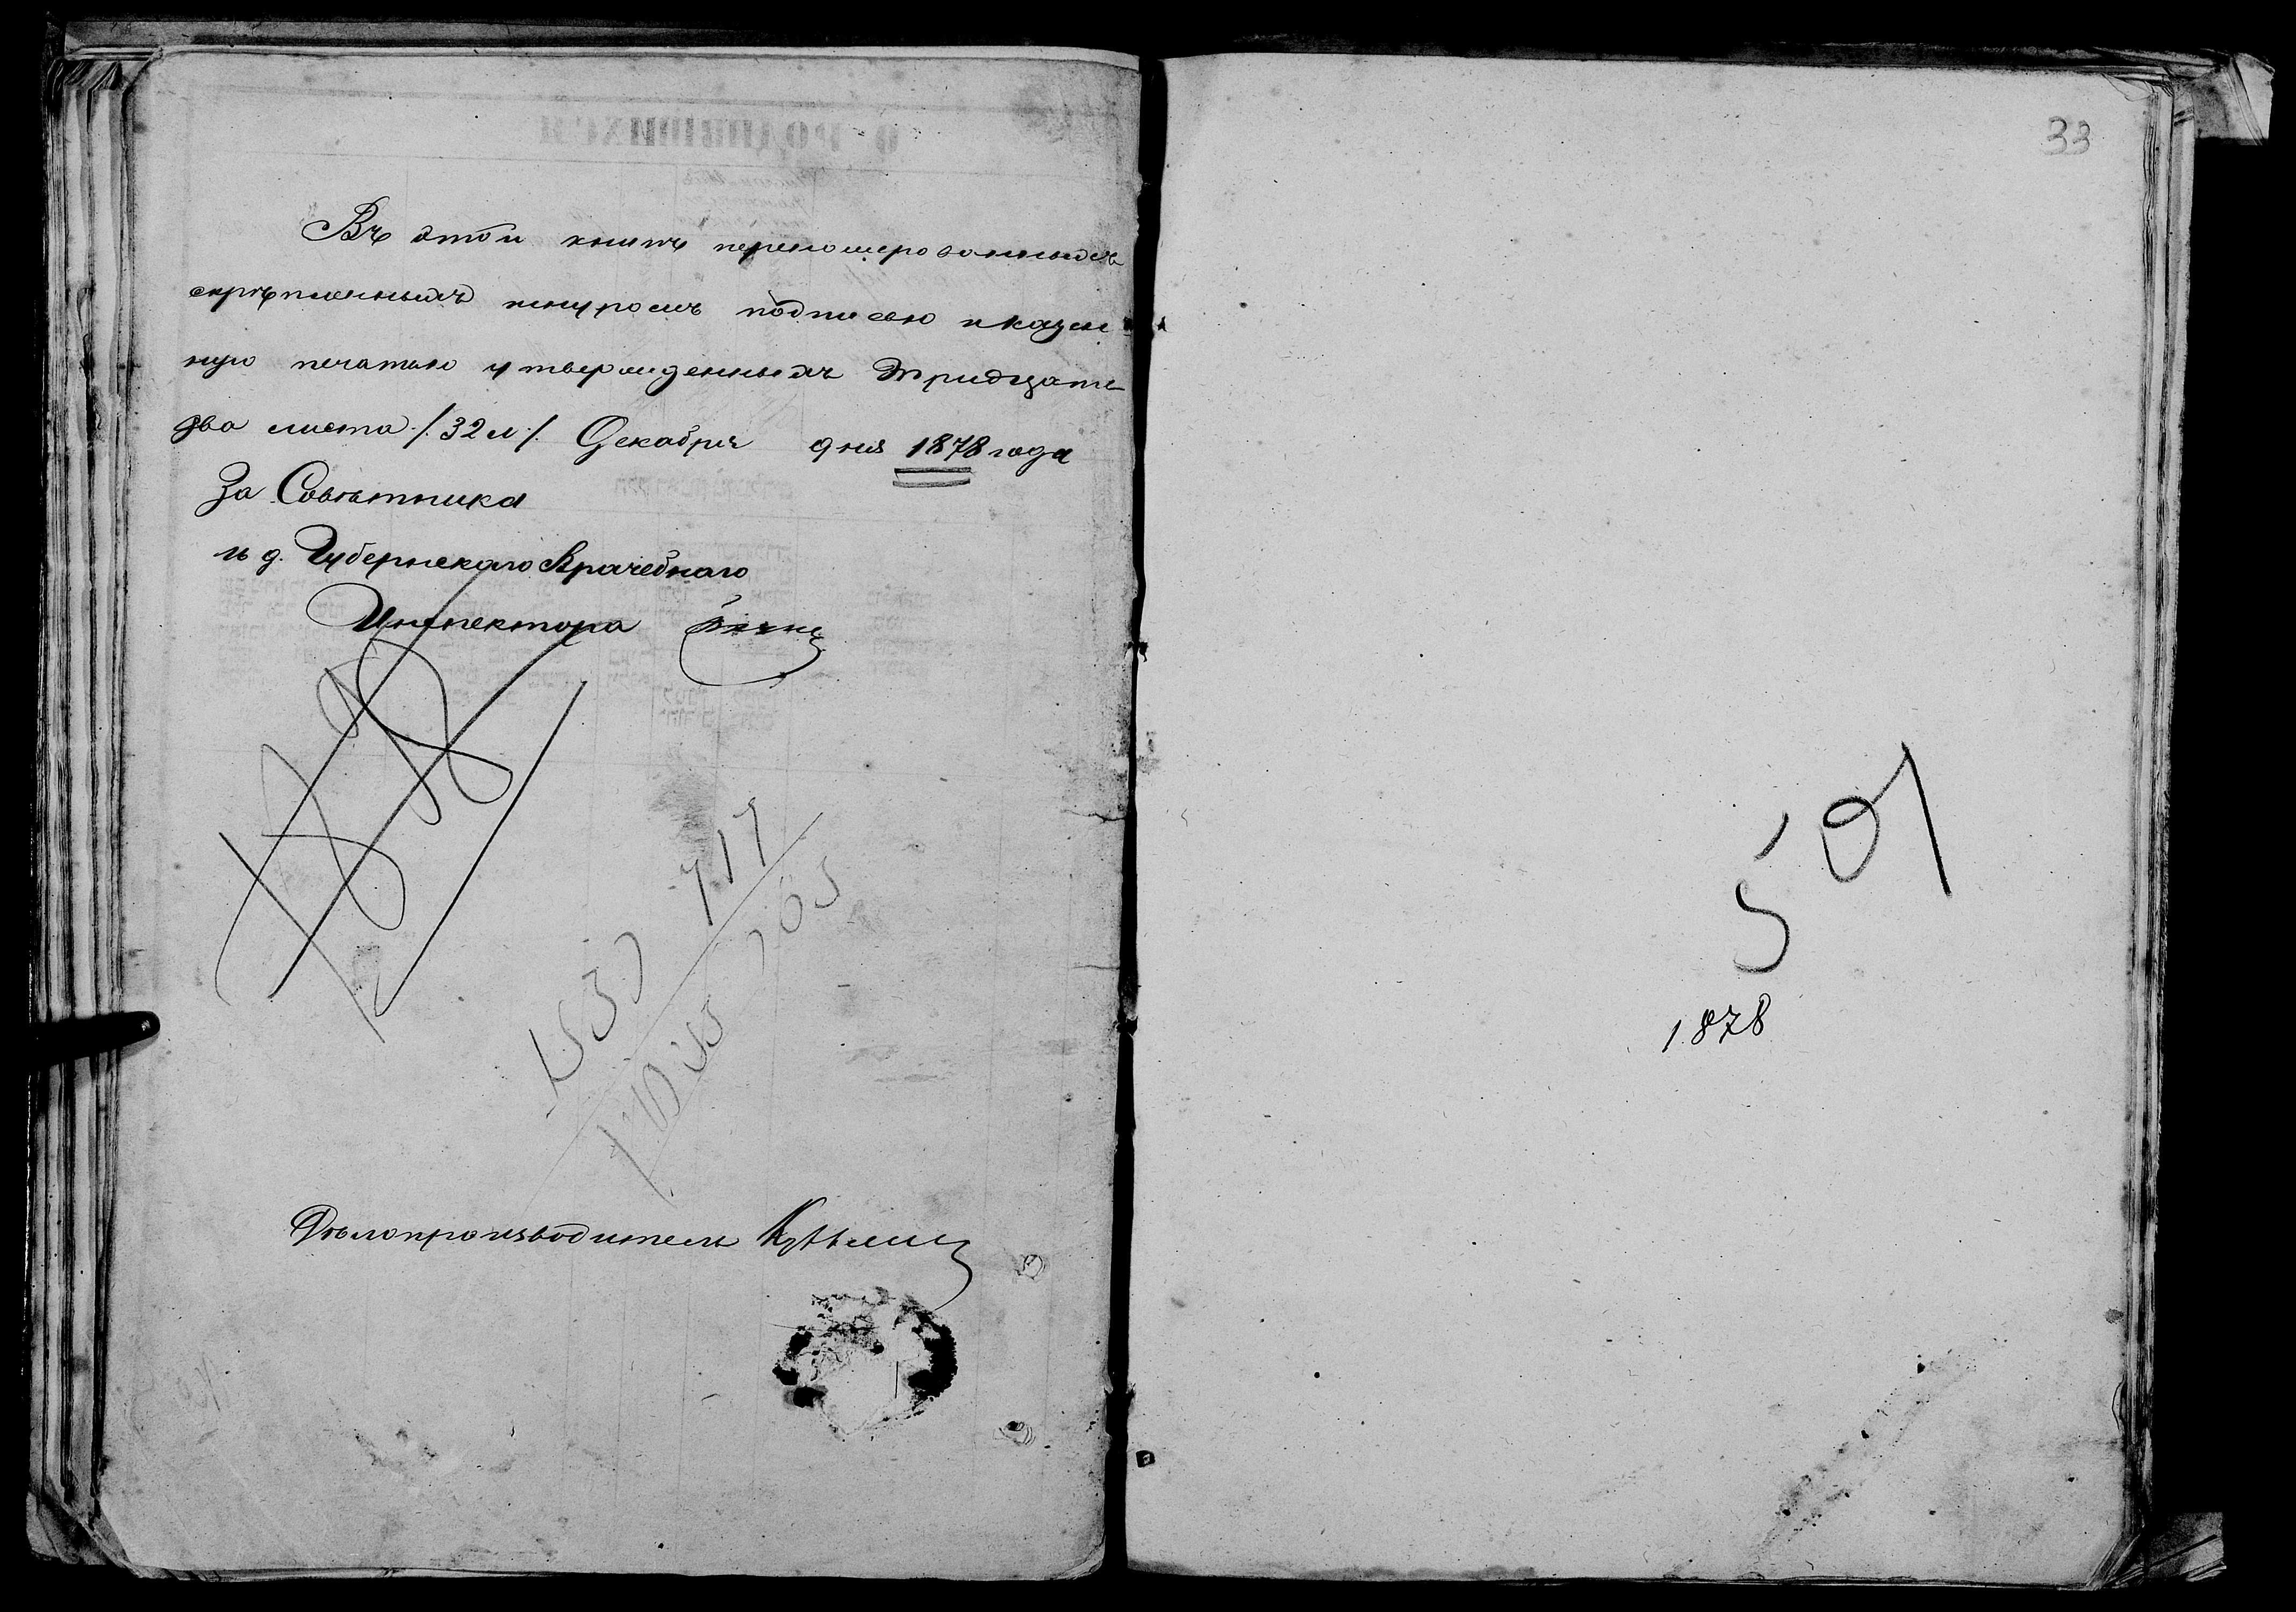 Въ этой книгѣ перенумерованныхъ
скрѣпленныхъ шнуромъ подписью и казен
ную печатью утвержденныхъ Тридцать
два листа /32 л/. Декабря дня 1878 года
За Совѣтника
и д. Губернскаго Врачебнаго
Инспектора
717
Дѣлопроизводитель
33
501
1878